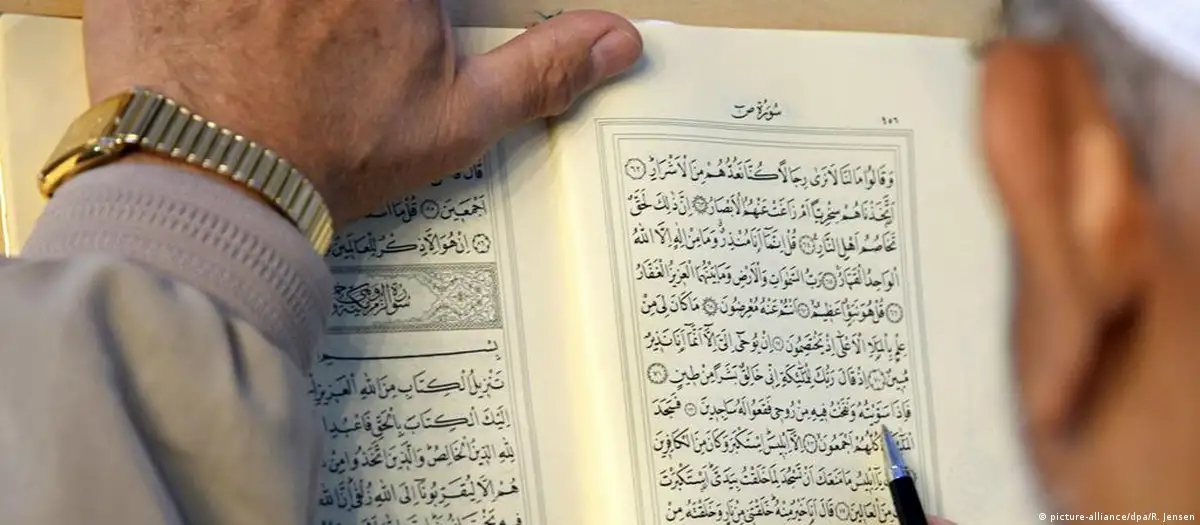 سُورَةُ صٓ
٤٥٦
وَقَالُوا مَا لَنَا لَا نَرٰى رِجَالًا كُنَّا نَعُدُّهُمْ مِنَ الْاَشْرَارِ ﴿٦٢﴾
اَتَّخَذْنَاهُمْ سِخْرِيًّا اَمْ زَاغَتْ عَنْهُمُ الْاَبْصَارُ ﴿٦٣﴾ اِنَّ ذٰلِكَ لَحَقٌّ
تَخَاصُمُ اَهْلِ النَّارِ ﴿٦٤﴾ قُلْ اِنَّمَا اَنَا مُنْذِرٌ وَمَا مِنْ اِلٰهٍ اِلَّا اللّٰهُ
الْوَاحِدُ الْقَهَّارُ ﴿٦٥﴾ رَبُّ السَّمٰوَاتِ وَالْاَرْضِ وَمَا بَيْنَهُمَا الْعَزِيزُ الْغَفَّارُ
﴿٦٦﴾ قُلْ هُوَ نَبَؤٌا عَظِيمٌ ﴿٦٧﴾ اَنْتُمْ عَنْهُ مُعْرِضُونَ ﴿٦٨﴾ مَا كَانَ لِيَ مِنْ
عِلْمٍ بِالْمَلَاِ الْاَعْلٰى اِذْ يَخْتَصِمُونَ ﴿٦٩﴾ اِنْ يُوحٰٓى اِلَيَّ اِلَّٓا اَنَّمَٓا اَنَا نَذِيرٌ
مُبِينٌ ﴿٧٠﴾ اِذْ قَالَ رَبُّكَ لِلْمَلٰٓئِكَةِ اِنِّي خَالِقٌ بَشَرًا مِنْ طِينٍ ﴿٧١﴾
فَاِذَا سَوَّيْتُهُ وَنَفَخْتُ فِيهِ مِنْ رُوحِي فَقَعُوا لَهُ سَاجِدِينَ ﴿٧٢﴾ فَسَجَدَ
كُلُّهُمْ اَجْمَعُونَ ﴿٧٣﴾ اِلَّٓا اِبْلِيسَ اِسْتَكْبَرَ وَكَانَ مِنَ الْكَافِرِينَ
يَٓا اِبْلِيسُ مَا مَنَعَكَ اَنْ تَسْجُدَ لِمَا خَلَقْتُ بِيَدَيَّ اَسْتَكْبَرْتَ
مِنَ الْعَالِينَ ﴿٧٥﴾ قَالَ اَنَا خَيْرٌ مِنْهُ خَلَقْتَنِي مِنْ نَارٍ وَخَلَقْتَهُ مِنْ
قَالَ
اَجْمَعِينَ ﴿٨٥﴾ قُلْ مَٓا
﴿٨٦﴾ اِنْ هُوَ اِلَّا ذِكْرٌ لِلْعَالَمِينَ
سُورَةُ الزُّمَرِ
بِسْمِ
تَنْزِيلُ الْكِتَابِ مِنَ اللّٰهِ الْعَزِيزِ
اِلَيْكَ الْكِتَابَ بِالْحَقِّ فَاعْبُدِ
لِلّٰهِ الدِّينُ الْخَالِصُ وَالَّذِينَ اتَّخَذُوا مِنْ
هُمْ اِلَّا لِيُقَرِّبُونَٓا اِلَى اللّٰهِ زُلْفٰى اِنَّ اللّٰهَ
© picture-alliance/dpa/R. Jensen